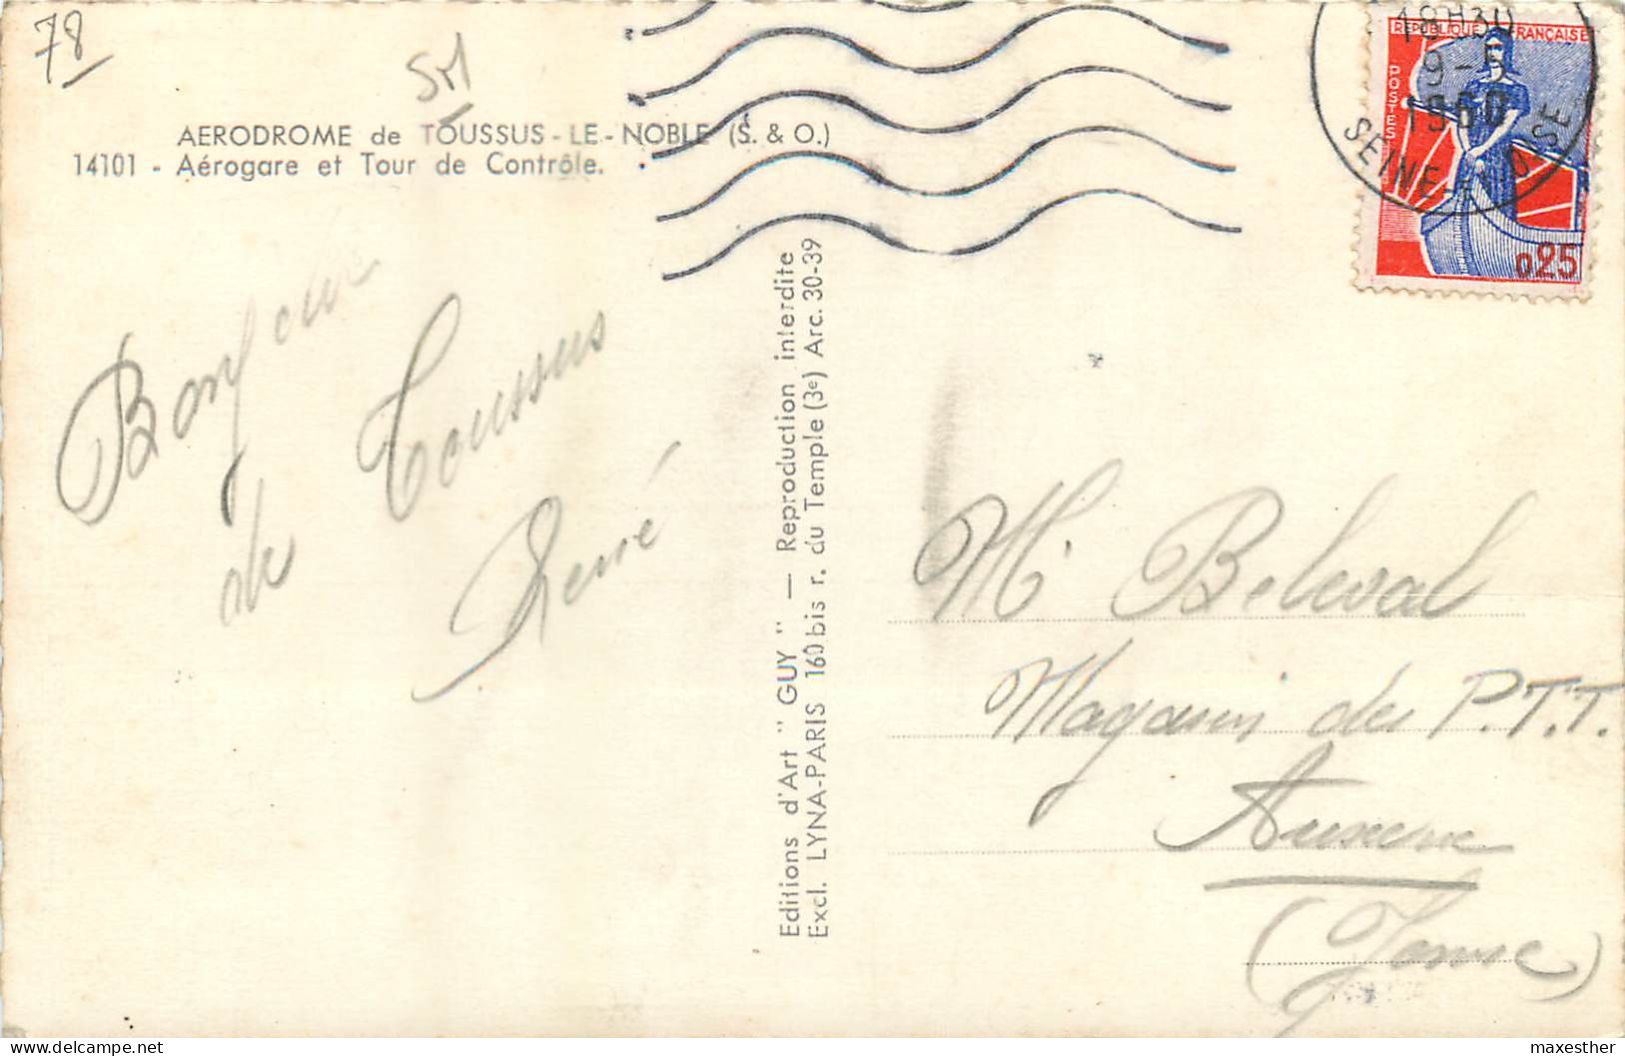 78
SM
AERODROME de TOUSSUS - LE - NOBLE (S. & O.)
14101 - Aérogare et Tour de Contrôle.
Bonjour
de Toussus
René
Editions d'Art "GUY" — Reproduction interdite
Excl. LYNA-PARIS 160 bis r. du Temple (3e) Arc. 30-39
18H30
9-5
1960
SEINE-ET-OISE
REPUBLIQUE FRANÇAISE
POSTES
0,25
Mr Beleval
Magasin des P.T.T.
Auxerre
(Yonne)
maxesther